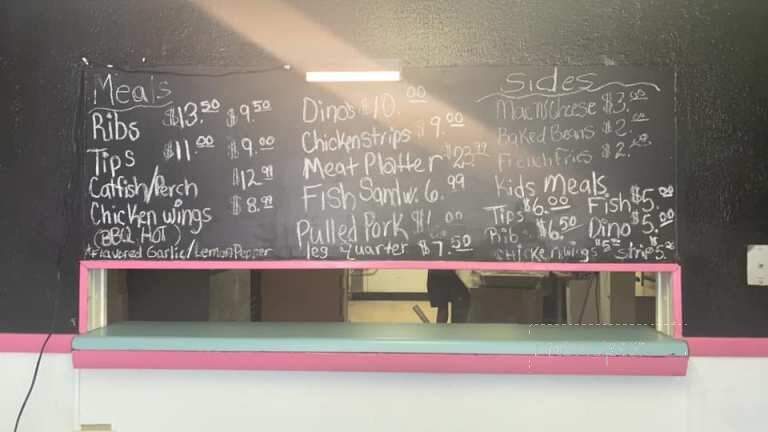 Meals
Ribs $13.50 $9.50
Tips $11.00 $9.00
Catfish/Perch $12.99
Chicken wings $8.99
(BBQ HOT)
Flavored Garlic/Lemon Pepper
Dino's $10.00
Chicken strips $9.00
Meat Platter $23.99
Fish Sandw. 6.99
Pulled Pork
leg quarter $7.50
Sides
Mac N Cheese $3.00
Baked Beans $2.00
French Fries $2.00
Kids Meals
Tips $6.00 Fish $5.00
Rib $6.50 Dino $5.00
Chicken wings $5 Strips